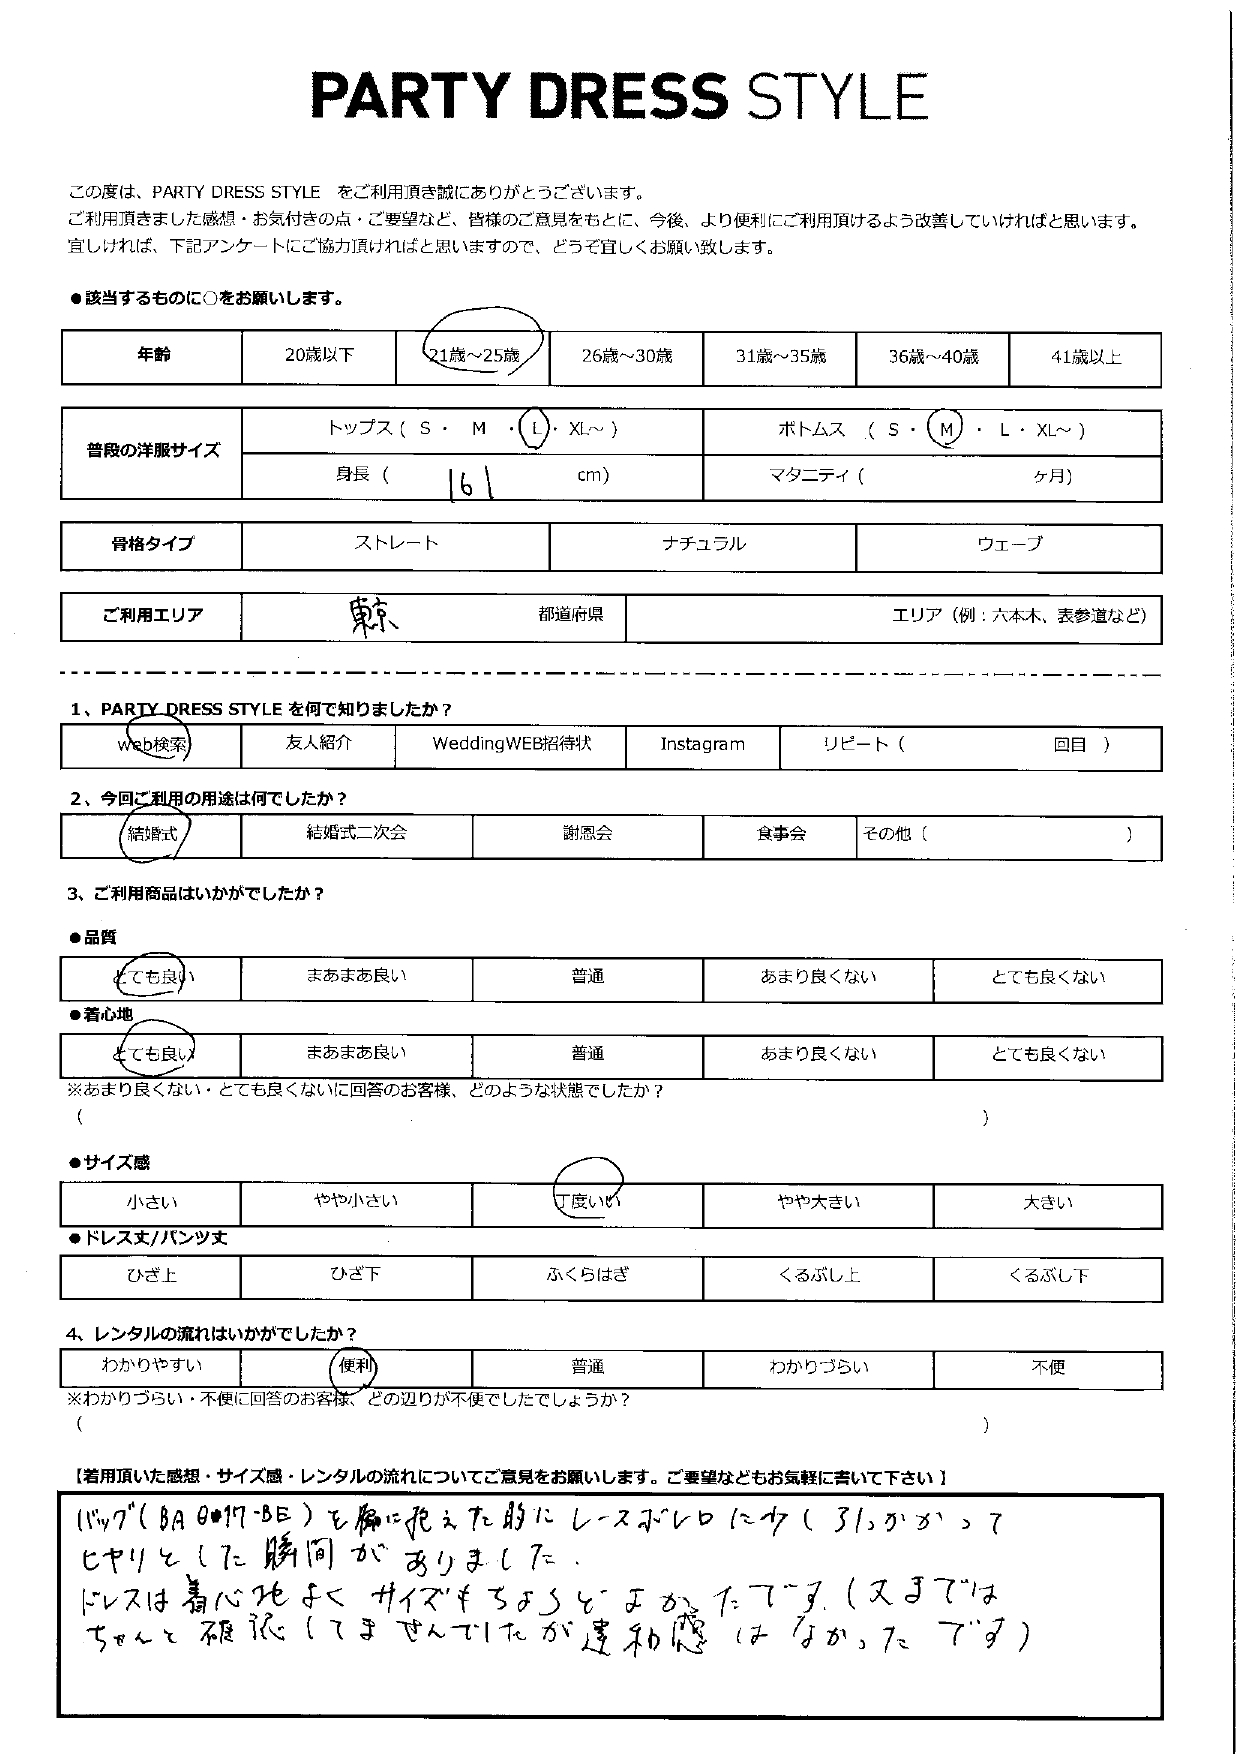 PARTY DRESS STYLE
この度は、PARTY DRESS STYLE　をご利用頂き誠にありがとうございます。
ご利用頂きました感想・お気付きの点・ご要望など、皆様のご意見をもとに、今後、より便利にご利用頂けるよう改善していければと思います。
宜しければ、下記アンケートにご協力頂ければと思いますので、どうぞ宜しくお願い致します。
●該当するものに○をお願いします。
年齢 20歳以下 21歳～25歳 26歳～30歳 31歳～35歳 36歳～40歳 41歳以上
普段の洋服サイズ トップス ( S ・ M ・ L ・ XL～ ) ボトムス ( S ・ M ・ L ・ XL～ )
身長 ( 161 cm) マタニティ ( ヶ月)
骨格タイプ ストレート ナチュラル ウェーブ
ご利用エリア 東京 都道府県 エリア（例：六本木、表参道など）
1、PARTY DRESS STYLE を何で知りましたか？
web検索 友人紹介 WeddingWEB招待状 Instagram リピート ( 回目 )
2、今回ご利用の用途は何でしたか？
結婚式 結婚式二次会 謝恩会 食事会 その他 ( )
3、ご利用商品はいかがでしたか？
●品質
とても良い まあまあ良い 普通 あまり良くない とても良くない
●着心地
とても良い まあまあ良い 普通 あまり良くない とても良くない
※あまり良くない・とても良くないに回答のお客様、どのような状態でしたか？
( )
●サイズ感
小さい やや小さい 丁度いい やや大きい 大きい
●ドレス丈/パンツ丈
ひざ上 ひざ下 ふくらはぎ くるぶし上 くるぶし下
4、レンタルの流れはいかがでしたか？
わかりやすい 便利 普通 わかりづらい 不便
※わかりづらい・不便に回答のお客様、どの辺りが不便でしたでしょうか？
( )
【着用頂いた感想・サイズ感・レンタルの流れについてご意見をお願いします。ご要望などもお気軽に書いて下さい 】
バッグ(BA 017-BE)を脇に抱えた時にレースボレロに少し引っかかって
ヒヤリとした瞬間がありました.
ドレスは着心地よくサイズもちょうどよかったです.(丈までは
ちゃんと確認してませんでしたが違和感はなかったです)